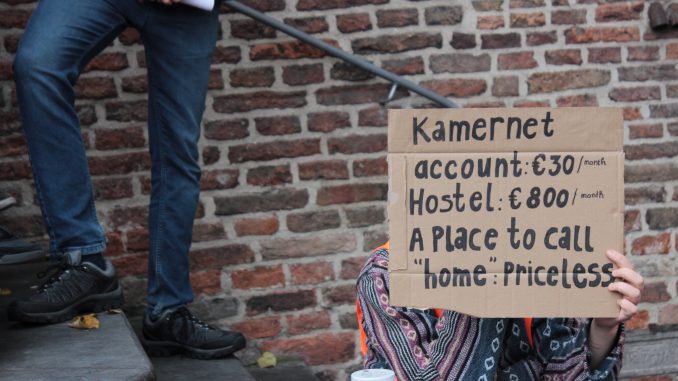 Kamernet
account: €30/month
Hostel: €800/month
A Place to call
"home": Priceless